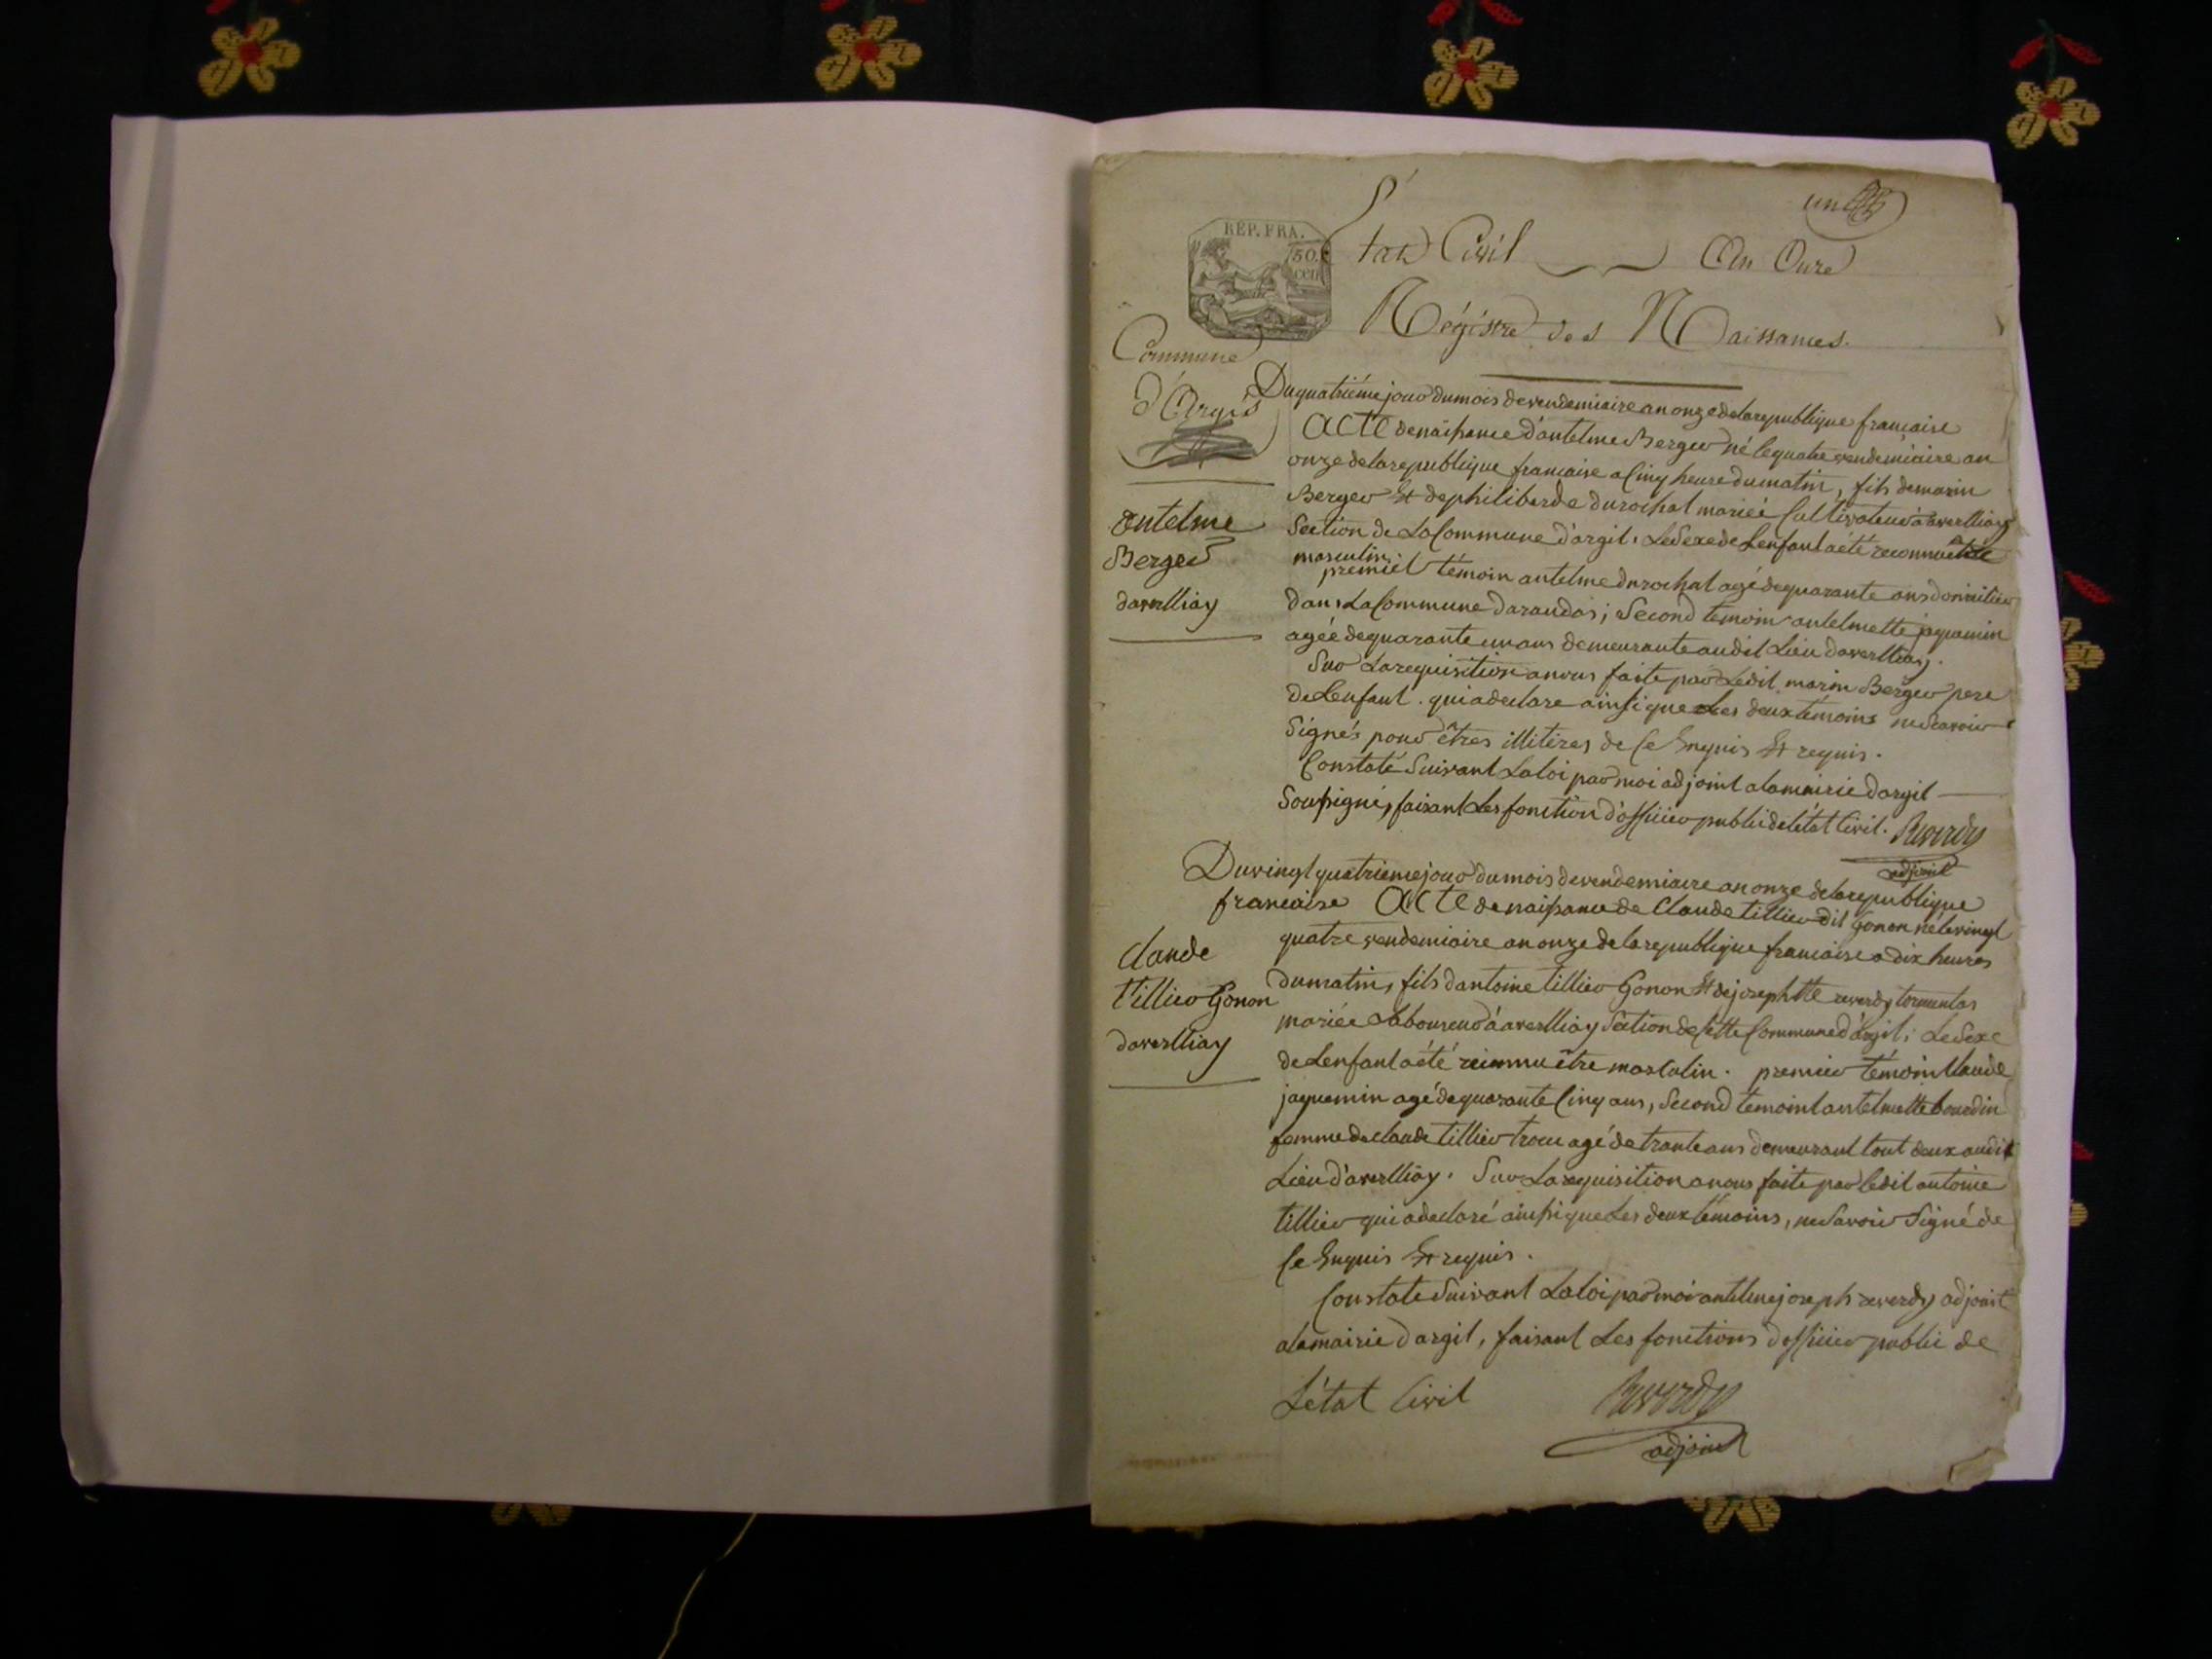 un
REP. FRA.
50.
cen
État Civil An Onze
Régistre des Naissances.
Commune
d'Argis
Du quatriéme jour du mois de vendemiaire an onze de la republique francaise
Acte de naissance d'antelme Berger né le quatre vendemiaire an
onze de la republique francaise a Cinq heure du matin, fils de marin
Berger Et de philiberde durochat mariéé Cultivateur a averlliay
Section de La Commune d'argil. Le Sexe de Lenfant a été reconnu être
masculin.
premiel témoin antelme durochat agé de quarante ans domicilier
dans La Commune darandas; Second temoin antelmette jaquemin
agéé de quarante un ans demeurante audit Lieu daverlliay.
Sur La requisition a nous faite par Ledit marin Berger pere
de Lenfant. qui a declare ainsi que Les deux témoins ne Scavoir
Signés pour êtres illitéres de Ce Enquis Et requis.
Constaté Suivant La loi par moi adjoint a la mairie dargil
Soussigné, faisant Les fonction d'officier public de létat Civil. Reverdy
adjoint
Antelme
Berger
daverlliay
Du vingt quatrieme jour du mois de vendemiaire an onze de la republique
francaise Acte de naissance de Claude tillier dit Gonon né le vingt
quatre vendemiaire an onze de la republique francaise a dix heures
du matin, fils dantoine tillier Gonon Et de josephtte reverdy tormentas
mariéé Laboureur à averlliay Section de Cette Commune d'argil; Le Sexe
de Lenfant a été reconnu être masculin. premier témoin Claude
jaquemin agé de quarante Cinq ans, Second temoint antelmette bourdin
femme de claude tillier trocu agé de trante ans demeurant tout deux audit
Lieu d'averlliay. Sur La requisition a nous faite par ledit antoine
tillier qui a declaré ainsi que Les deux témoins, ne Savoir Signé de
Ce Enquis Et requis.
Constate Suivant La loi par moi antelme joseph reverdy adjoint
a la mairie dargil, faisant Les fonctions dofficier public de
L'état Civil Reverdy
adjoint
Claude
tillier Gonon
daverlliay